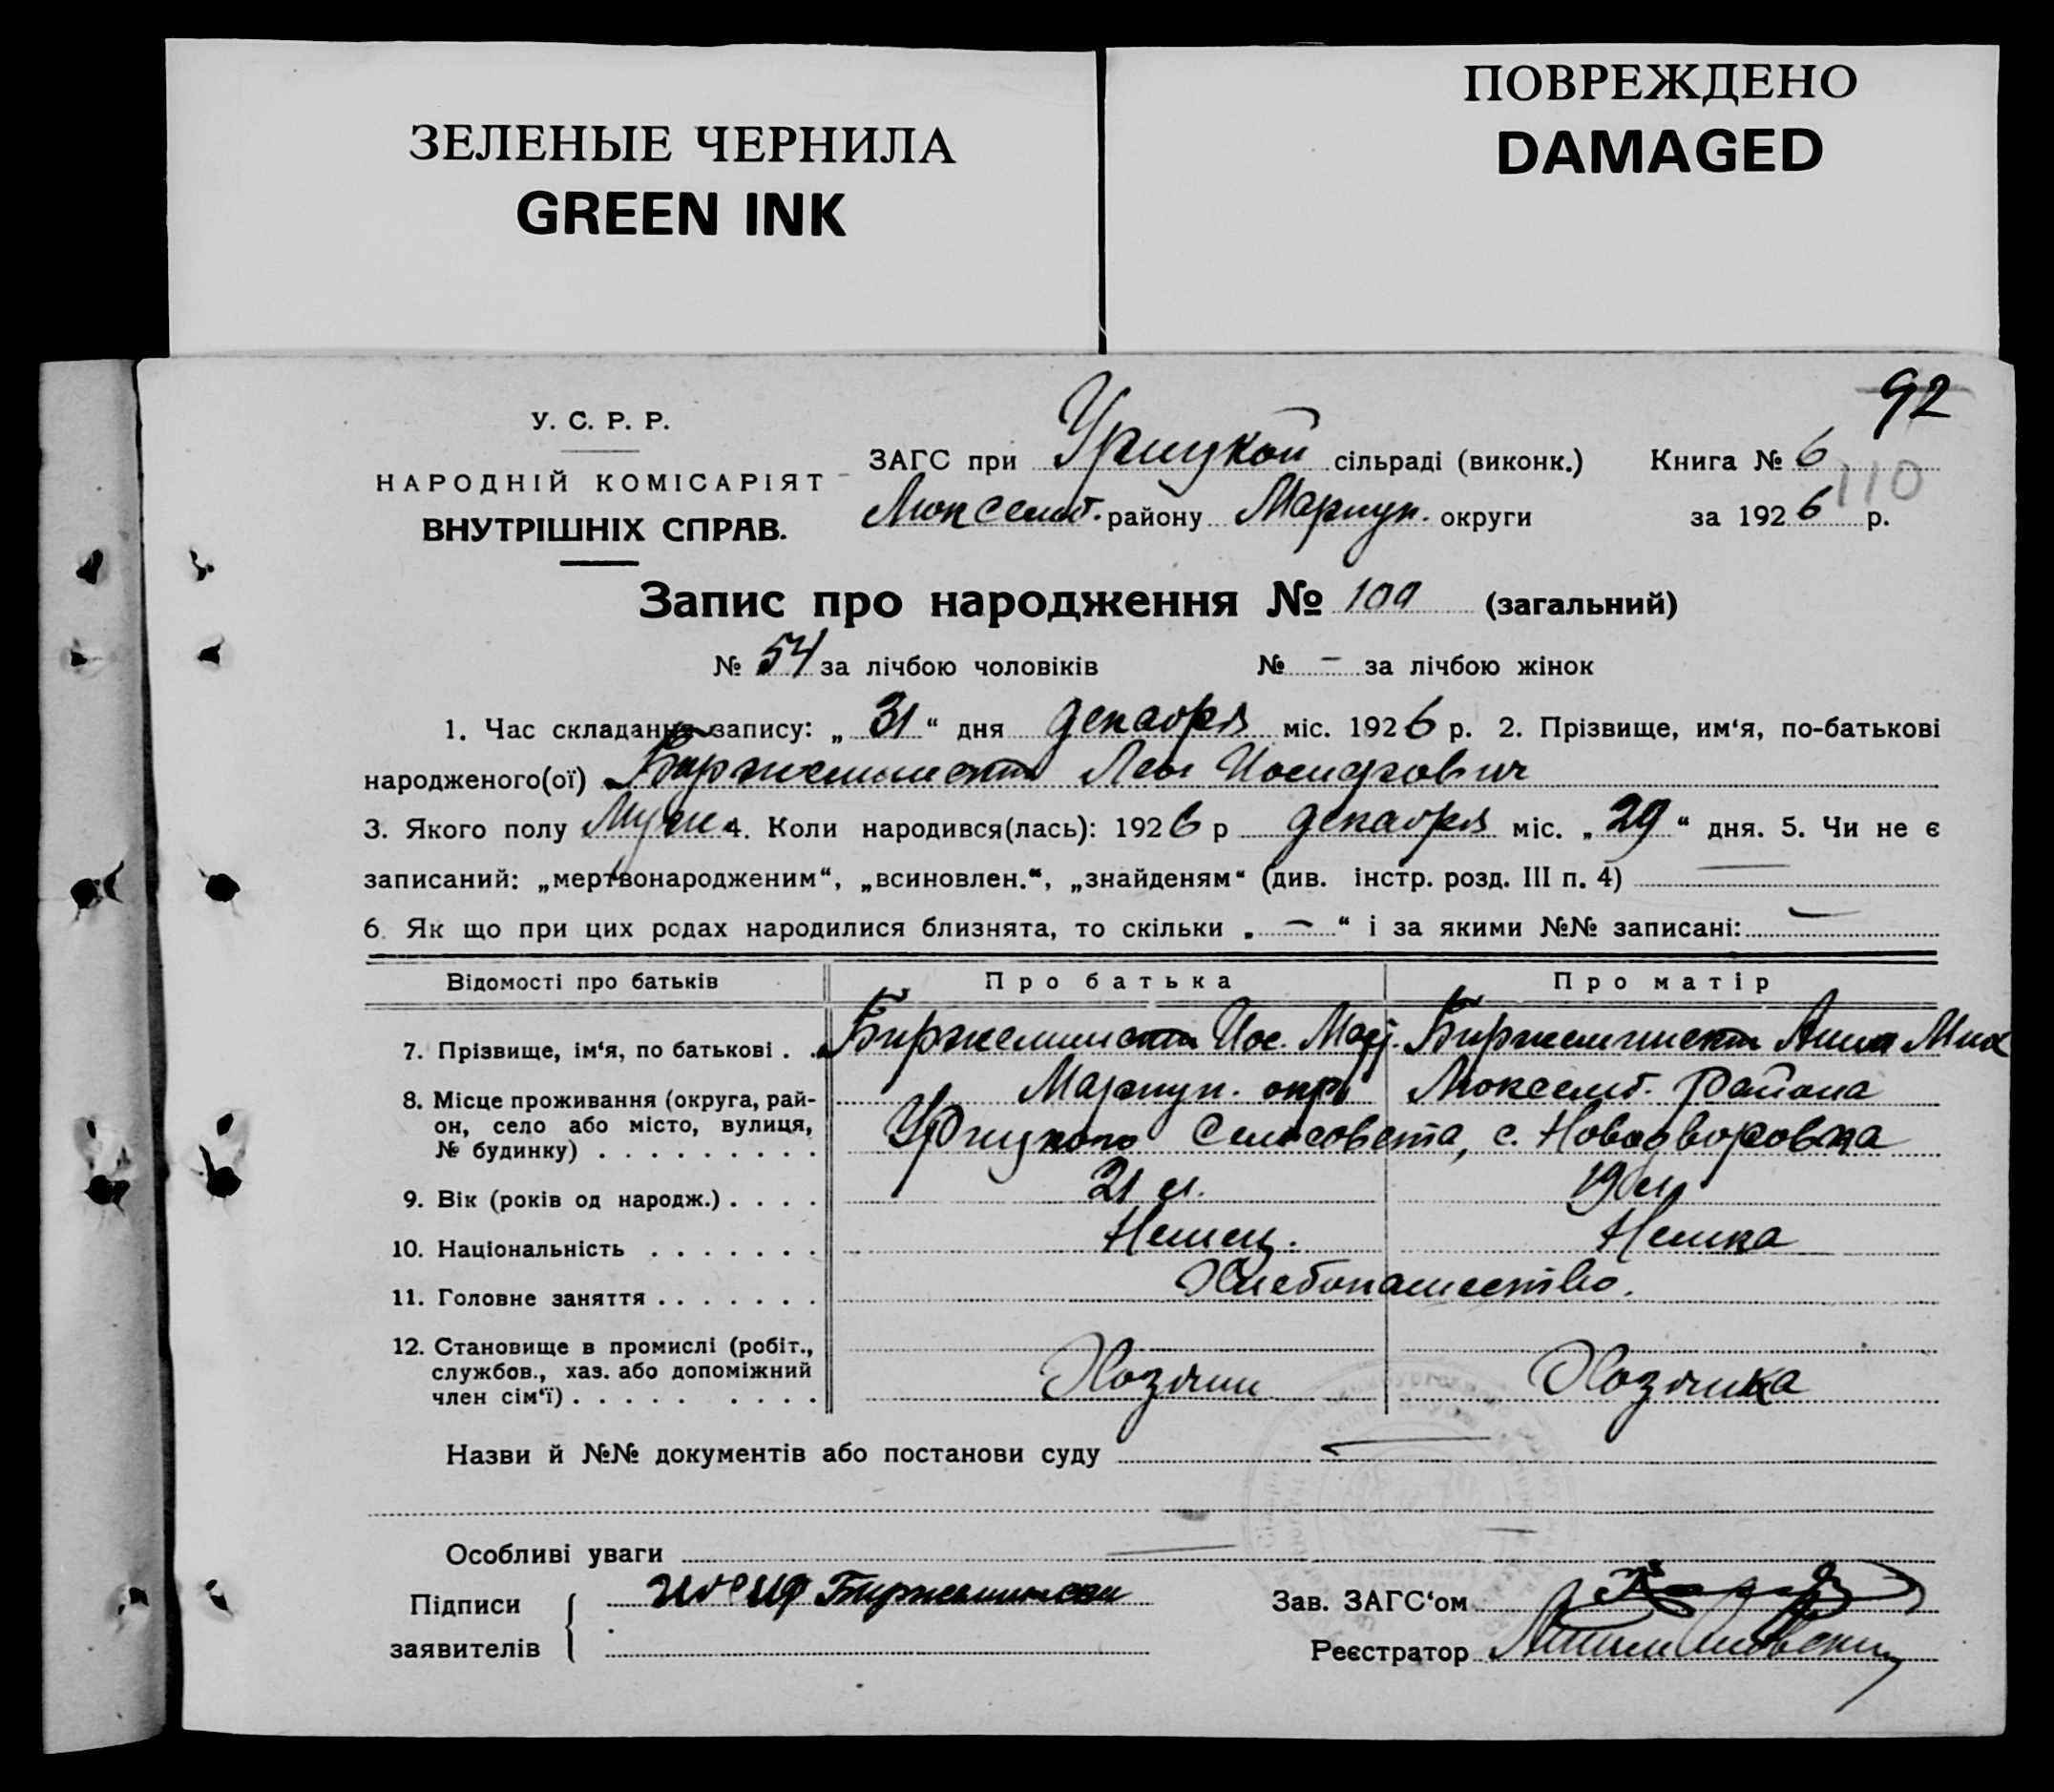 ЗЕЛЕНЫЕ ЧЕРНИЛА
GREEN INK
ПОВРЕЖДЕНО
DAMAGED
92
У. С. Р. Р.
НАРОДНІЙ КОМІСАРІЯТ
ВНУТРІШНІХ СПРАВ.
ЗАГС при Урицкой сільраді (виконк.) Книга № 6
110
Люксемб. району Мариуп. округи за 1926 р.
Запис про народження № 109 (загальний)
№ 54 за лічбою чоловіків № – за лічбою жінок
1. Час складання запису: „ 31 “ дня декабря міс. 1926 р. 2. Прізвище, им‘я, по-батькові
народженого(ої) Лев Иосифович
3. Якого полу Муж. 4. Коли народився(лась): 1926 р декабря міс. „ 29 “ дня. 5. Чи не є
записаний: „мертвонародженим“, „всиновлен.“, „знайденям“ (див. інстр. розд. III п. 4) —
6. Як що при цих родах народилися близнята, то скільки „ — “ і за якими №№ записані: —
Відомості про батьків Про батька Про матір
7. Прізвище, ім‘я, по батькові . . Иос. Анна Мих
8. Місце проживання (округа, рай-
он, село або місто, вулиця,
№ будинку) . . . . . . . . .
Мариуп. окр. Люксемб. района
Урицкого Сельсовета, с. Новодворовка
9. Вік (років од народж.) . . . . 21 л. 19 л.
10. Національність . . . . . . . Немец. Немка
11. Головне заняття . . . . . . . Хлебопашество.
12. Становище в промислі (робіт.,
службов., хаз. або допоміжний
член сім‘ї) . . . . . . . . . Хозяин Хозяйка
Назви й №№ документів або постанови суду —
Особливі уваги —
Підписи
заявителів
Зав. ЗАГС‘ом
Реєстратор